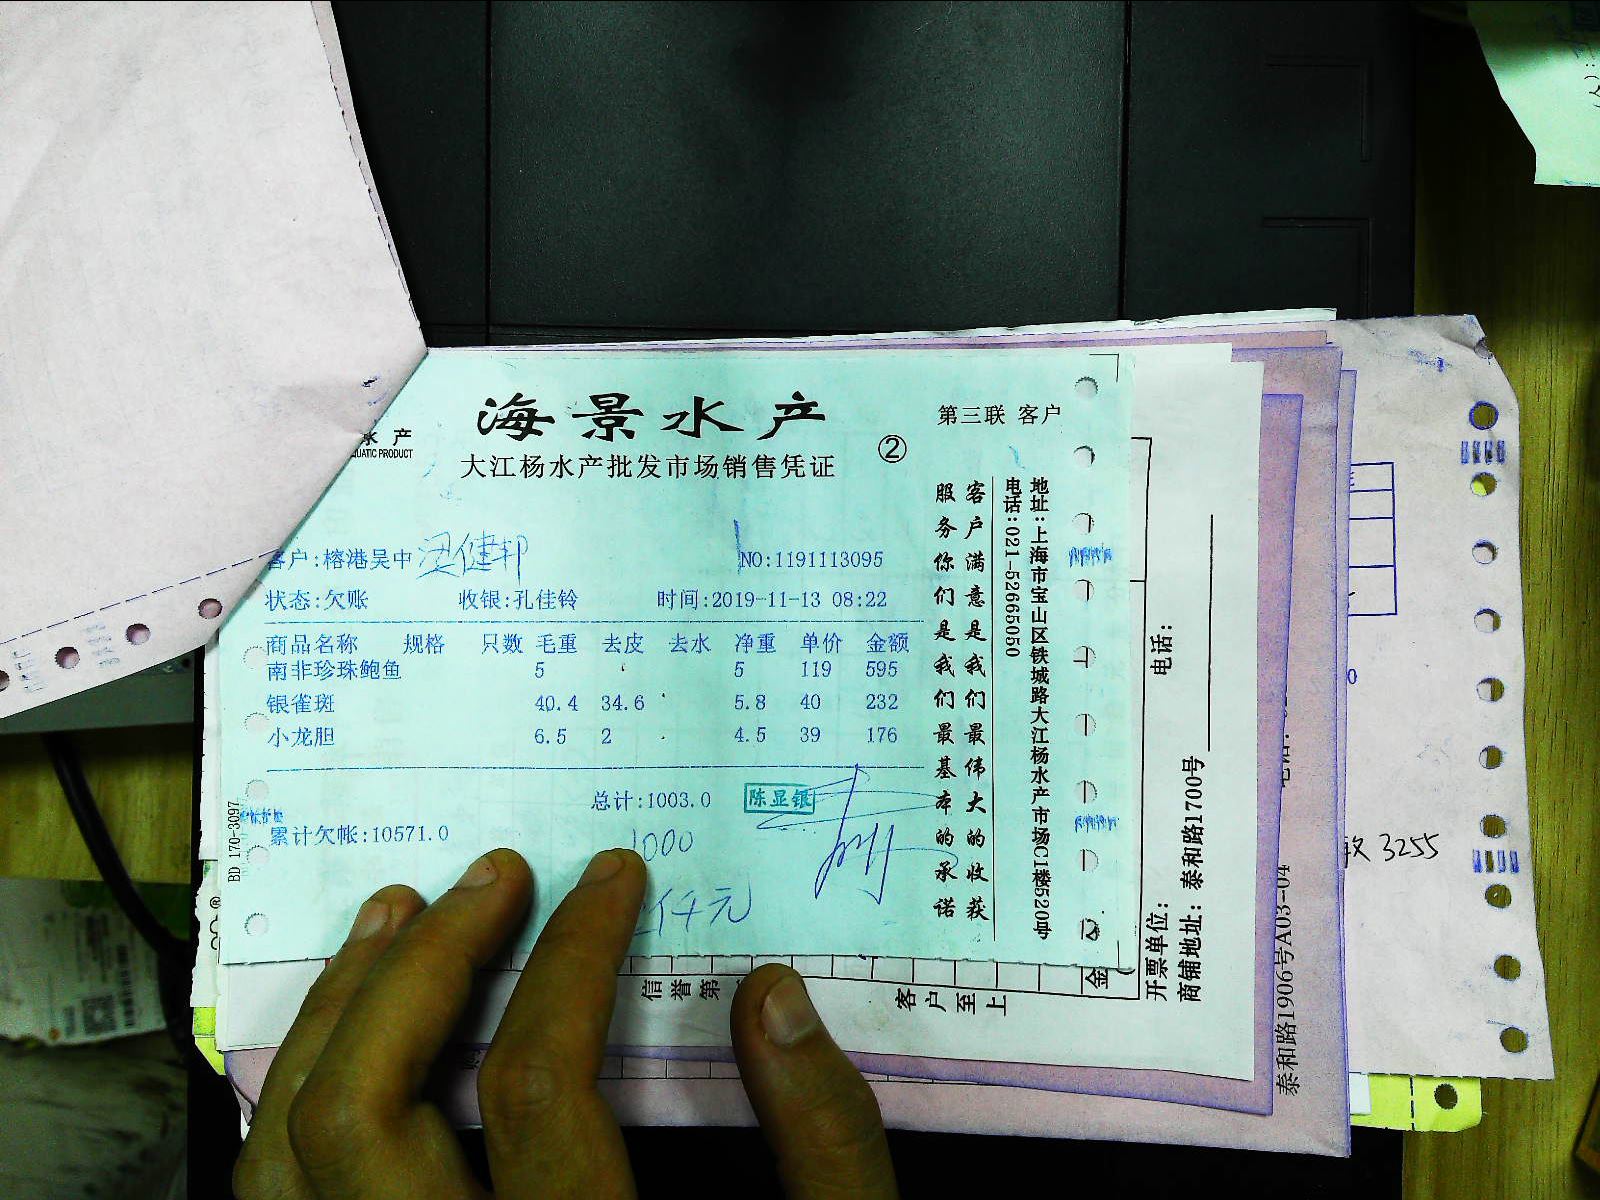 海景水产
水产
UATIC PRODUCT
大江杨水产批发市场销售凭证
②
第三联 客户
客户:榕港吴中 梁健邦
NO:1191113095
状态:欠账 收银:孔佳铃 时间:2019-11-13 08:22
商品名称 规格 只数 毛重 去皮 去水 净重 单价 金额
南非珍珠鲍鱼 5 5 119 595
银雀斑 40.4 34.6 5.8 40 232
小龙胆 6.5 2 4.5 39 176
总计:1003.0
陈显银
累计欠帐:10571.0
1000
仟元
BD 170-3097
客户满意是我们最伟大的收获
服务你们是我们最基本的承诺
地址:上海市宝山区铁城路大江杨水产市场C1楼520号
电话:021-52665050
信誉第
客户至上
金
电话:
开票单位:
商铺地址: 泰和路1700号
泰和路1906号A03-04
3255